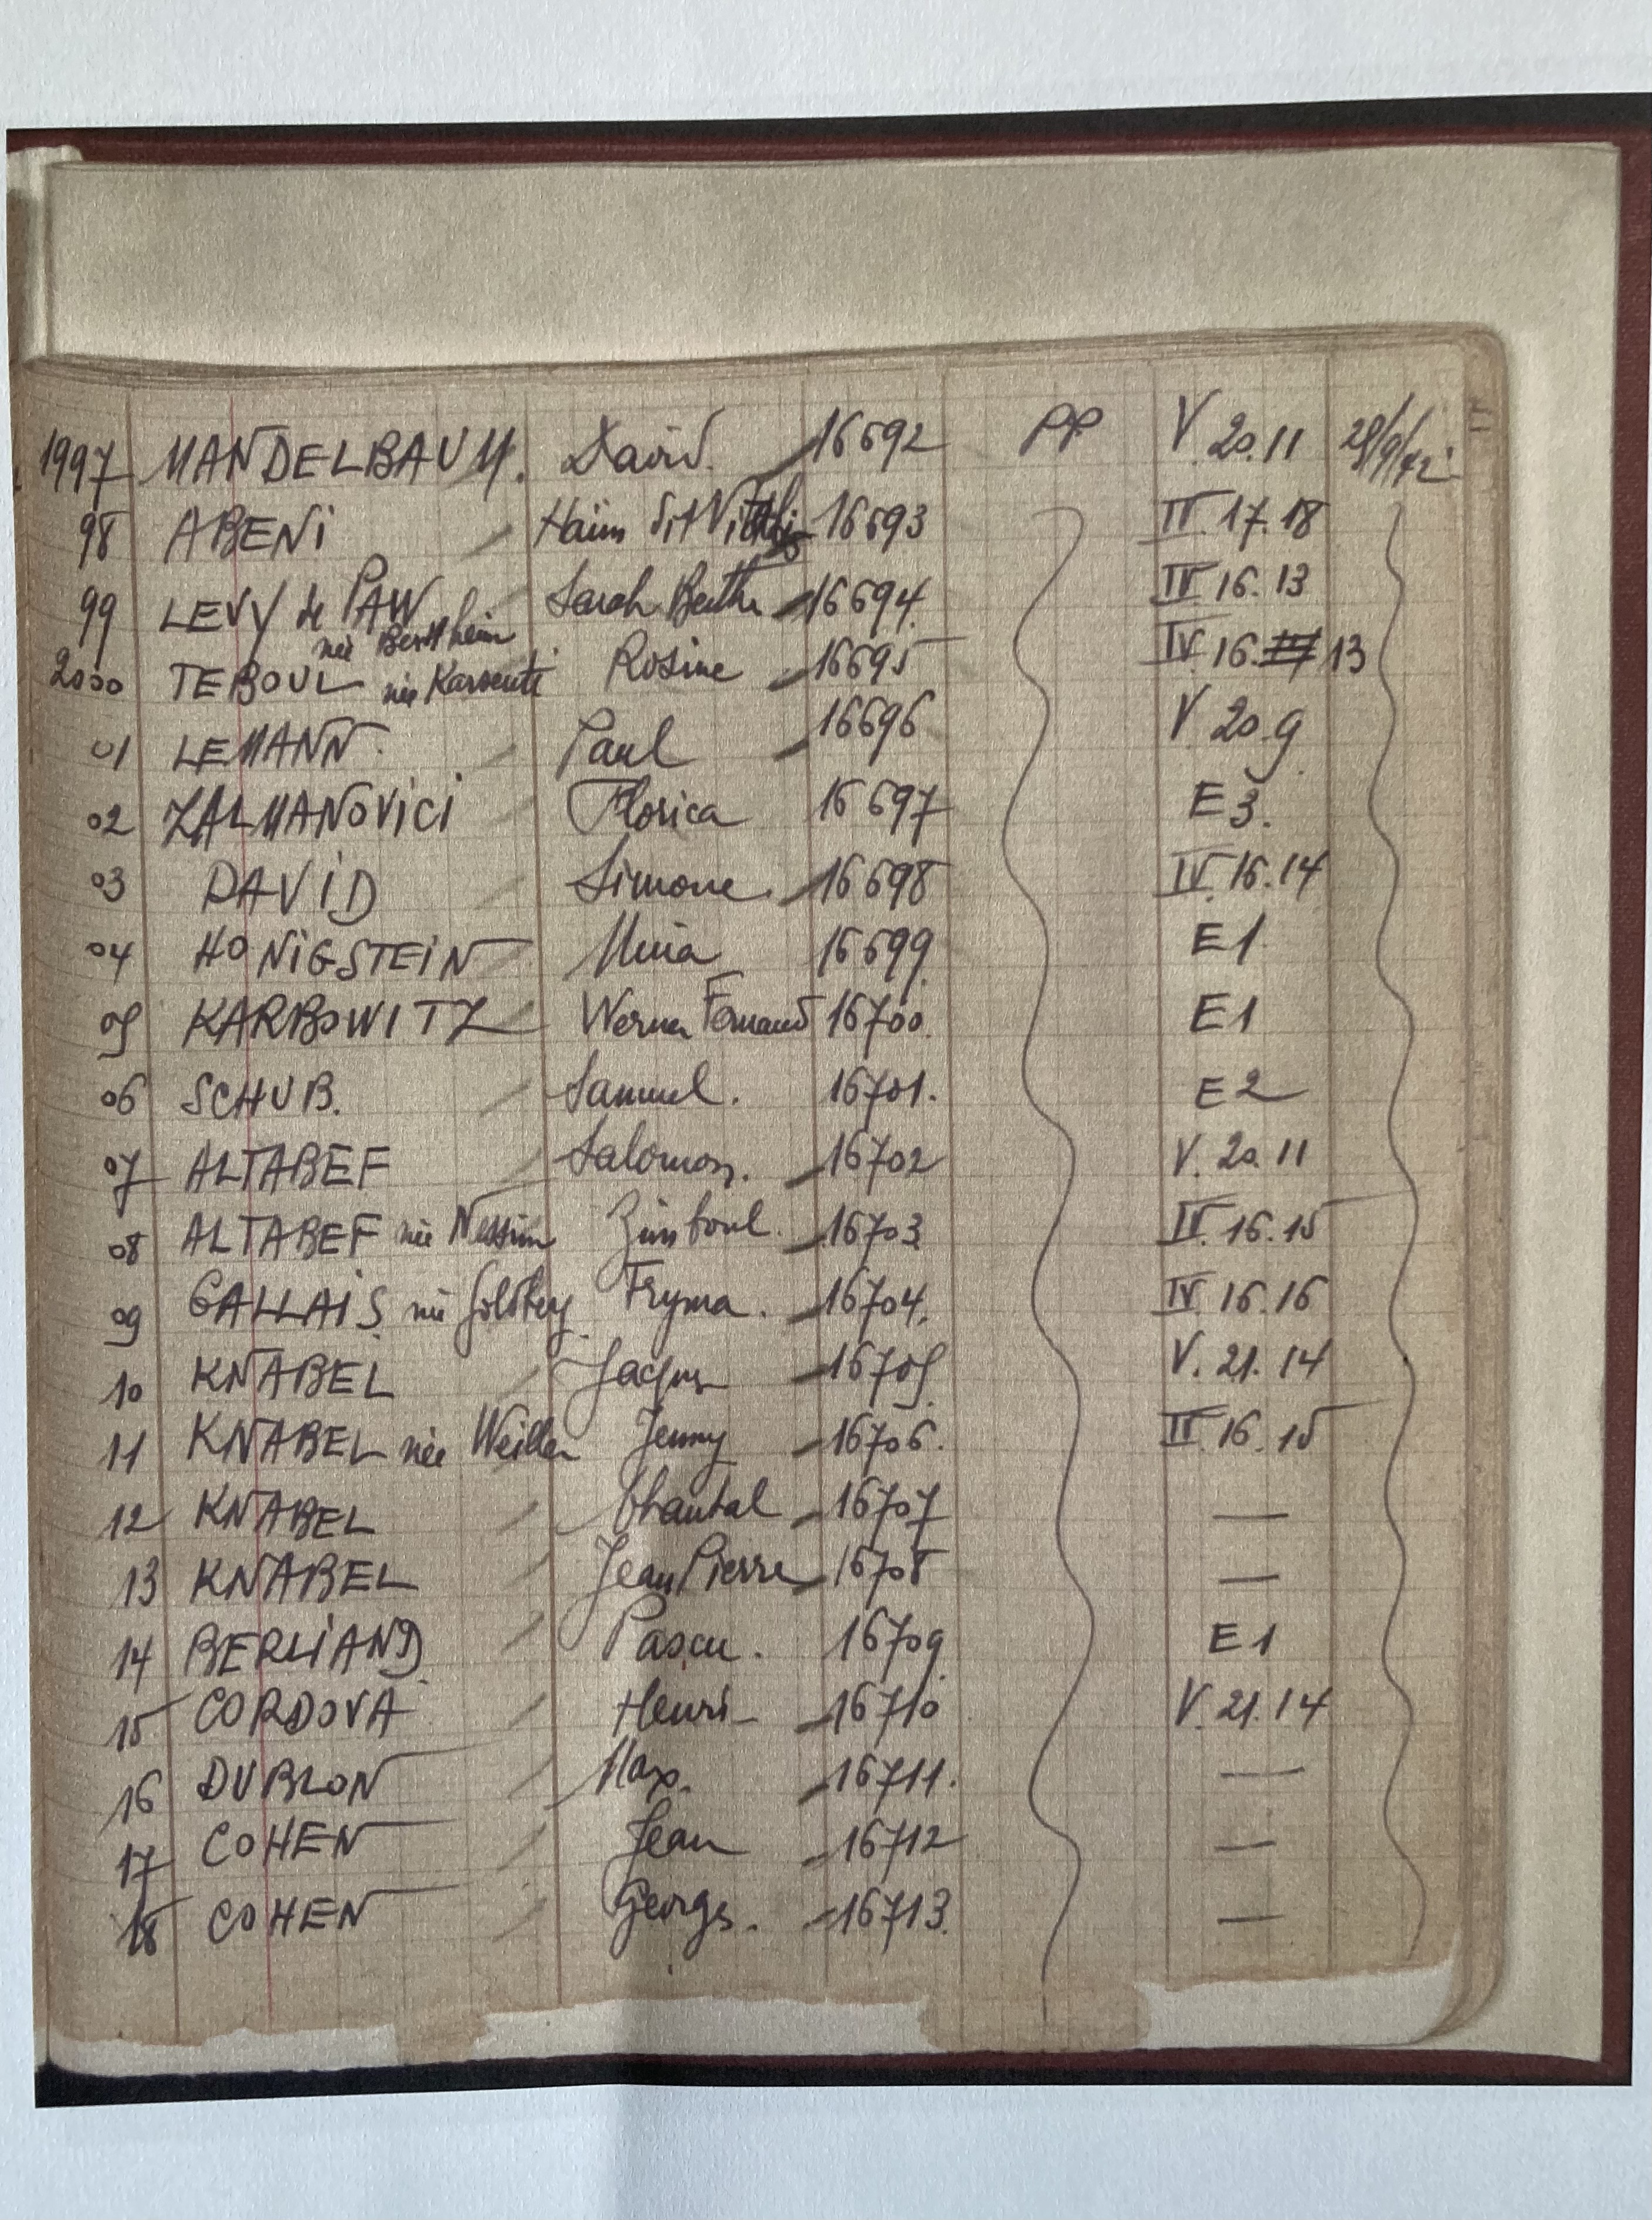 1997 MANDELBAUM. David. 16692 PP V. 20.11 28/9/42
98 ABENI Haïm dit 16693 II. 17.18
99 LEVY de PAW Sarah Berthe 16694. IV 16.13
née Berthheim
2000 TEBOUL née Karsenti Rosine 16695 IV. 16. 13
01 LEMANN. Paul 16696 V 20.9
02 ZALMANOVICI Florica 16697 E3.
03 DAVID Simone. 16698 IV. 16.14
04 HONIGSTEIN Mina 16699. E1
05 KARBOWITZ Werner Fernand 16700. E1
06 SCHUB. Samuel. 16701. E2
07 ALTABEF Salomon. 16702 V. 20.11
08 ALTABEF née Nessim Zimboul. 16703 IV. 16.15
09 GALLAIS née Goldberg Fryma. 16704. IV. 16.16
10 KNABEL Jacques 16705. V. 21.14
11 KNABEL née Weiller Jenny 16706. II. 16.15
12 KNABEL Chantal 16707 —
13 KNABEL Jean Pierre 16708 —
14 BERLIAND Pascu. 16709 E1
15 CORDOVA Henri 16710 V. 21.14
16 DUBLON Max. 16711. —
17 COHEN Jean 16712 —
18 COHEN Georges. 16713. —